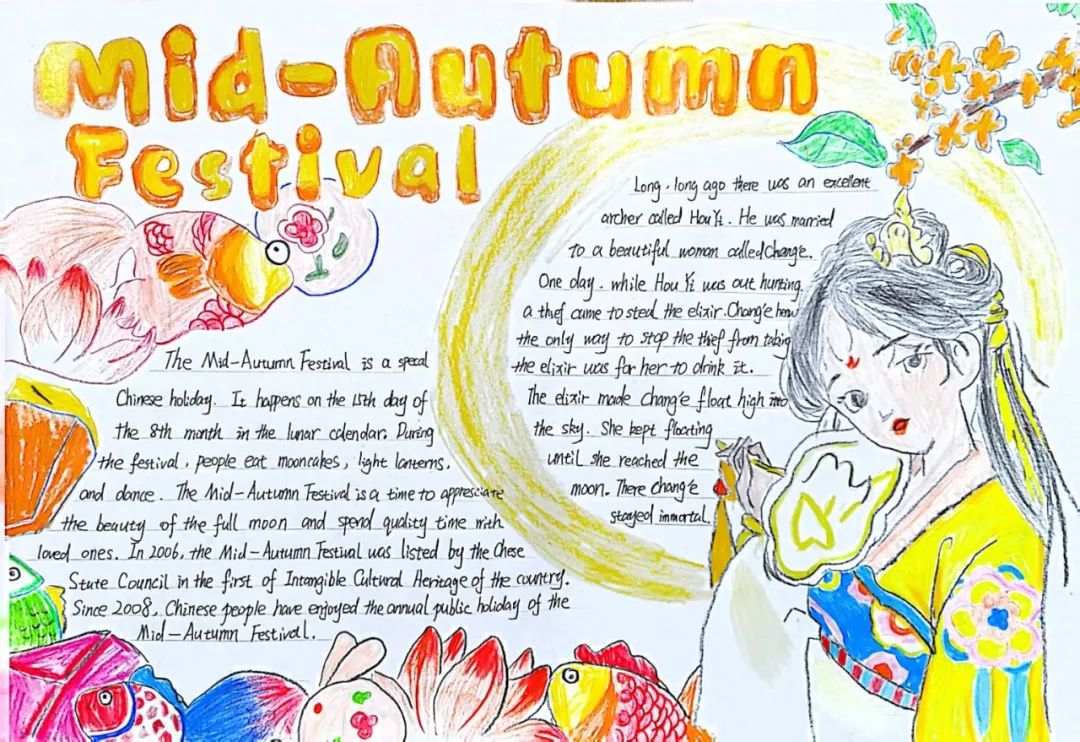 Mid-Autumn
Festival
Long, long ago there was an excellent
archer called Hou Yi. He was married
to a beautiful woman called Chang'e.
One day, while Hou Yi was out hunting,
a thief came to steal the elixir. Chang'e
the only way to stop the thief from taking
the elixir was for her to drink it.
The elixir made chang'e float high into
the sky. She kept floating
until she reached the
moon. There chang'e
stayed immortal.
The Mid-Autumn Festival is a specal
Chinese holiday. It happens on the 15th day of
the 8th month in the lunar calendar. During
the festival, people eat mooncakes, light lanterns,
and dance. The Mid-Autumn Festival is a time to appresciate
the beauty of the full moon and spend quality time with
loved ones. In 2006, the Mid-Autumn Festival was listed by the Chese
State Council in the first of Intangible Cultural Heritage of the country.
Since 2008, Chinese people have enjoyed the annual public holiday of the
Mid-Autumn Festival.